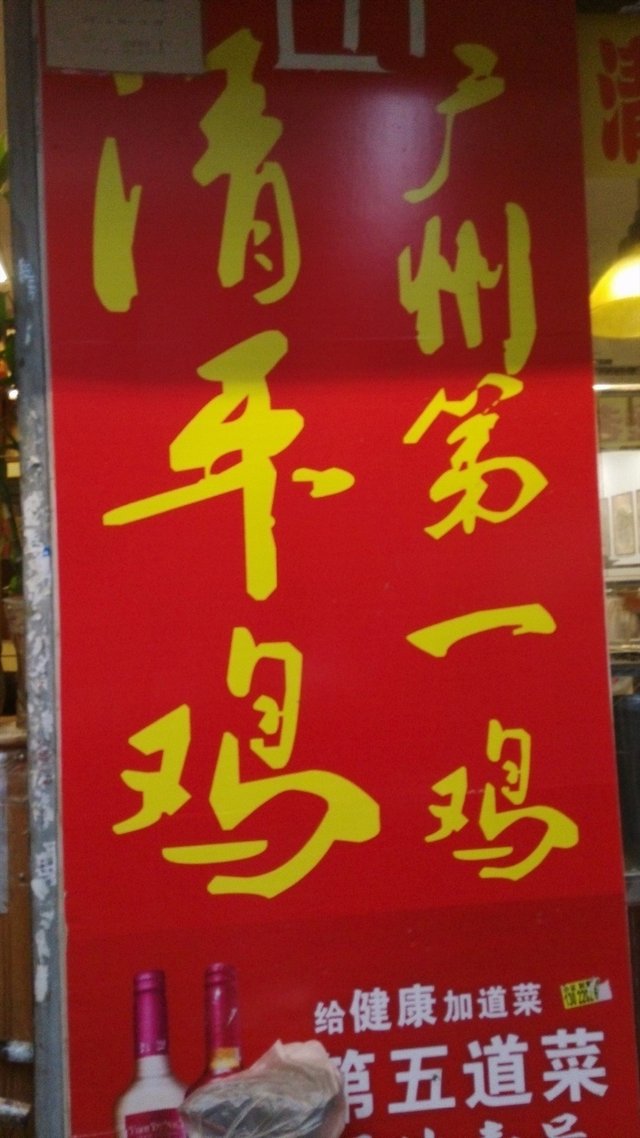 广州第一鸡
清平鸡
给健康加道菜
第五道菜